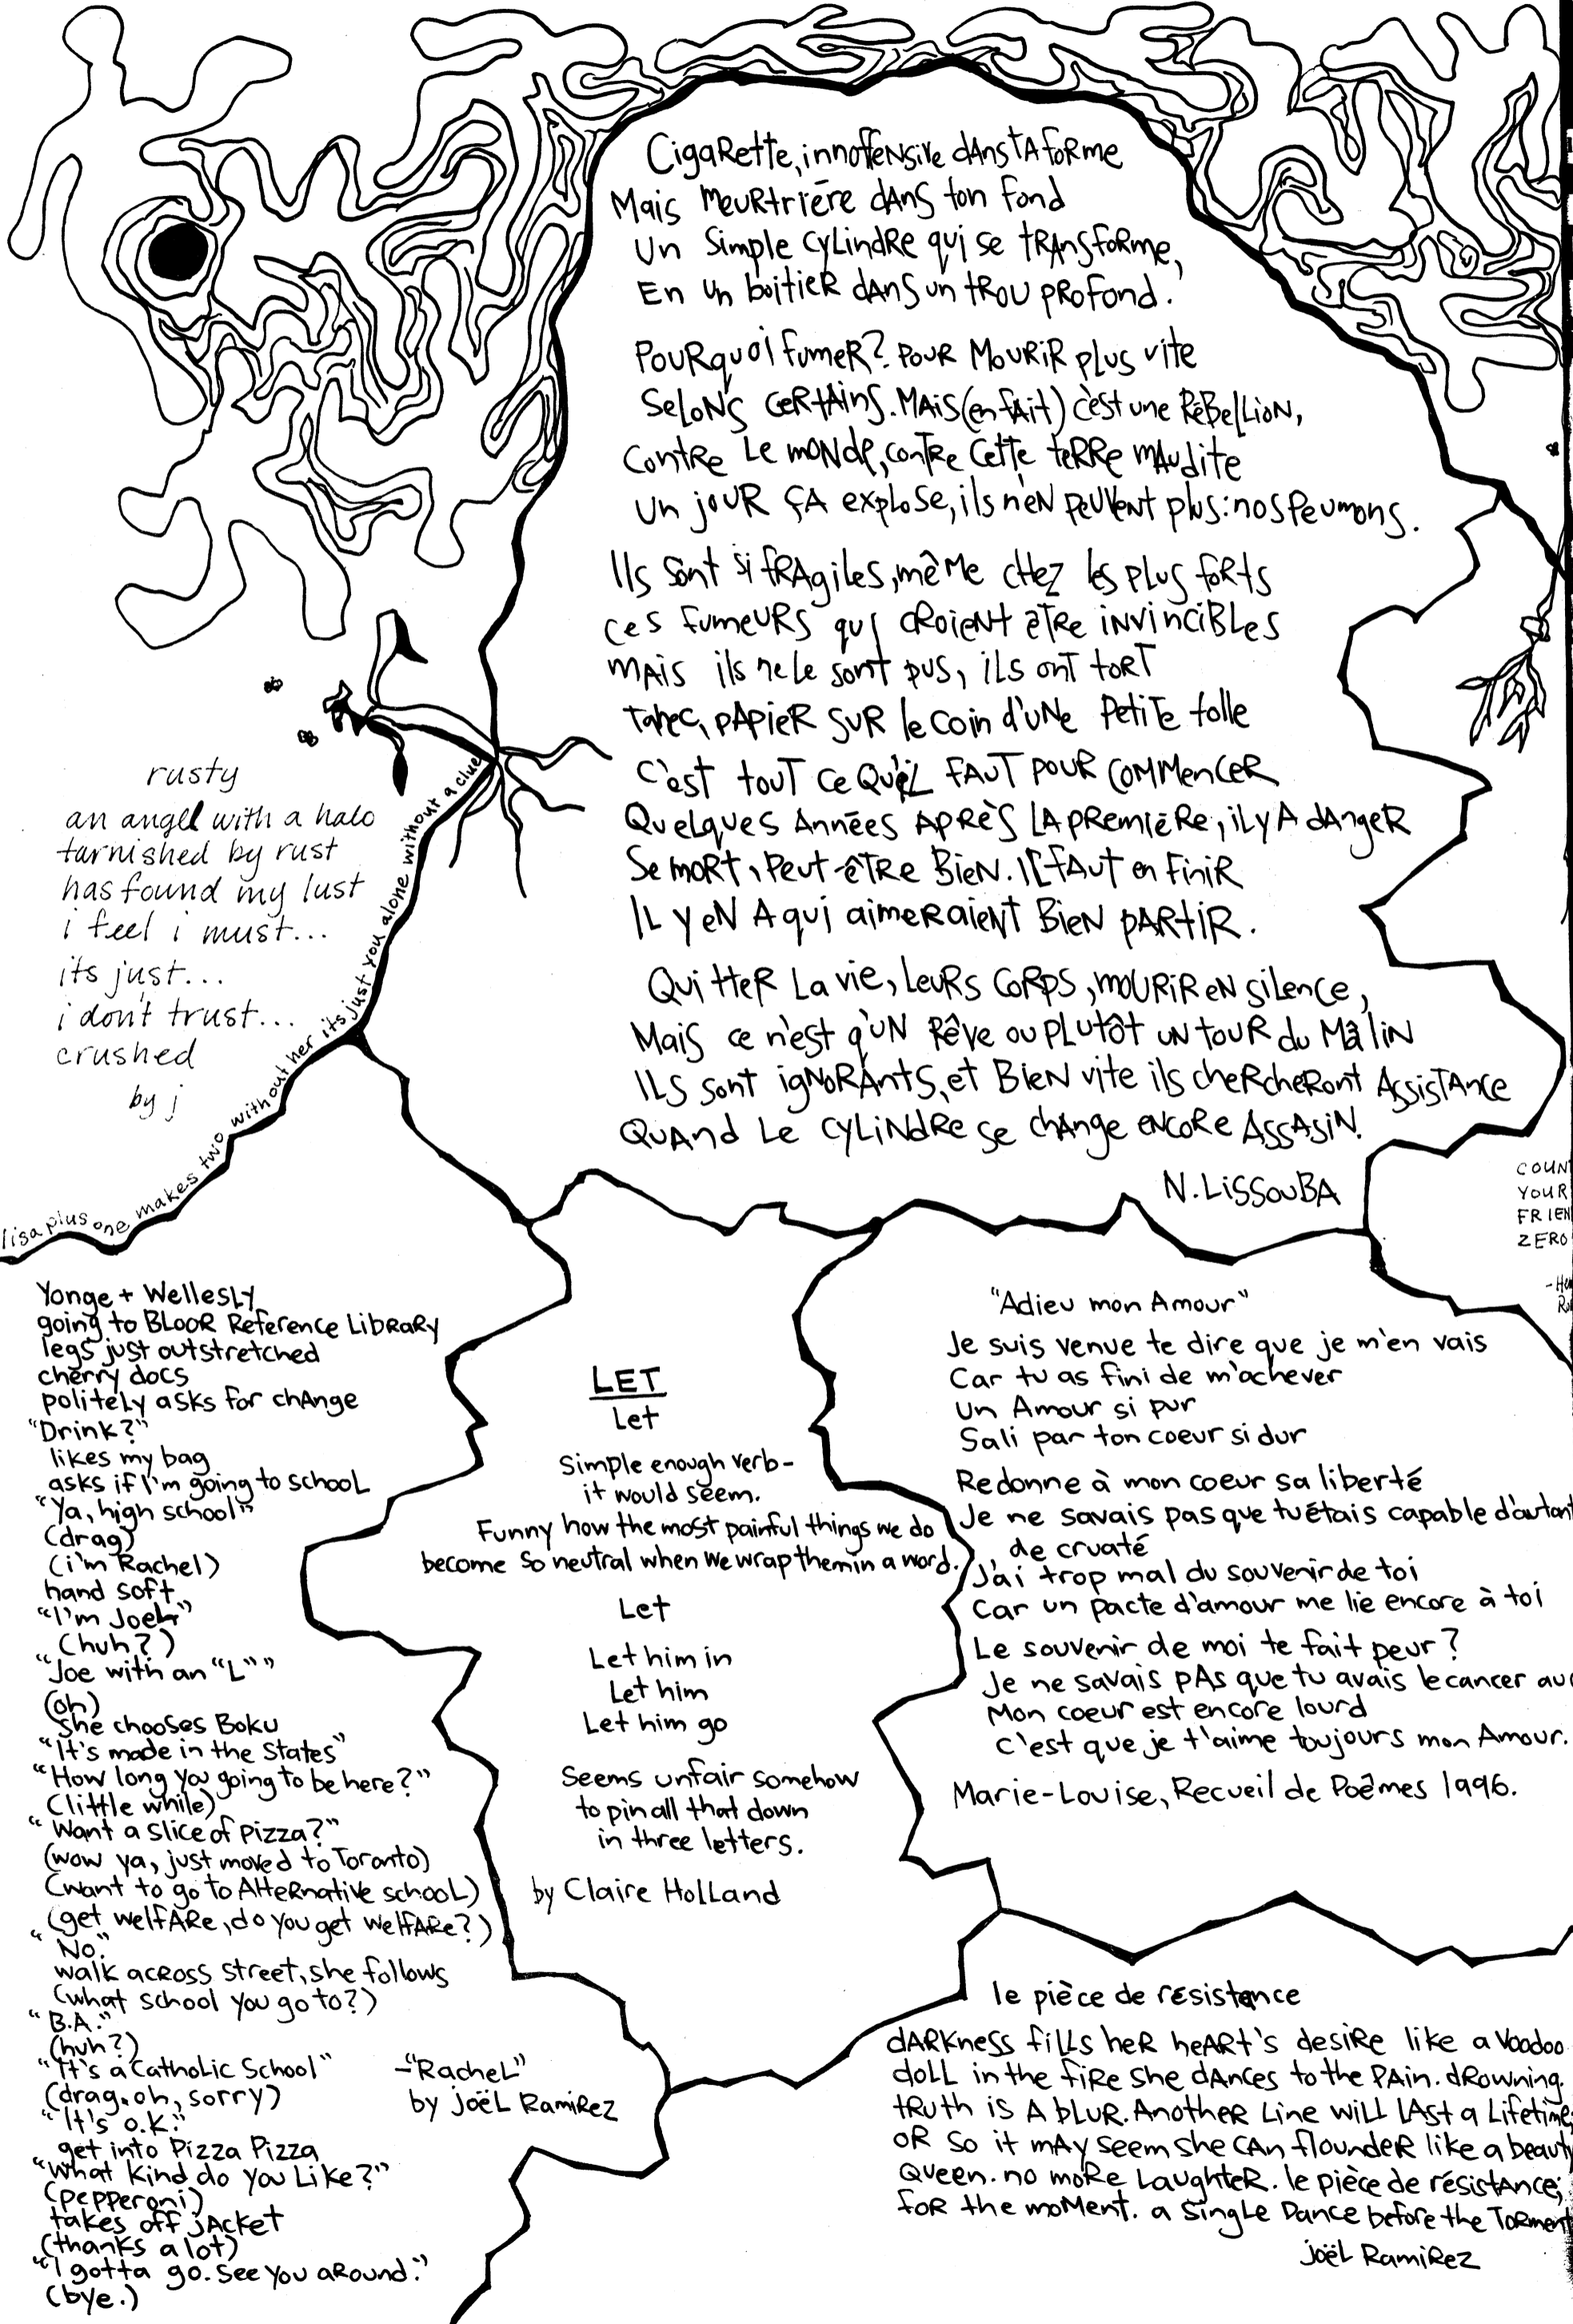 CigaRette, innoffensive dans ta forme
Mais meurtrière dans ton fond
Un simple cylindre qui se transforme,
En un boitier dans un trou profond.
Pourquoi fumer? Pour mourir plus vite
Selons certains. Mais (en fait) c'est une rébellion,
Contre le monde, contre cette terre maudite
Un jour ça explose, ils n'en peuvent plus: nos peumons.
Ils sont si fragiles, même chez les plus forts
Ces fumeurs qui croient être invincibles
Mais ils ne le sont pus, ils ont tort
Tabec, papier sur le coin d'une petite folle
C'est tout ce qu'il faut pour commencer
Quelques années après la première, il y a danger
Se mort, peut-être bien. Il faut en finir
Il y en a qui aimeraient bien partir.
Quitter la vie, leurs corps, mourir en silence,
Mais ce n'est q'un rêve ou plutôt un tour du Mâlin
Ils sont ignorants, et bien vite ils chercheront assistance
Quand le cylindre se change encore assasin.
N. Lissouba
rusty
an angel with a halo
tarnished by rust
has found my lust
i feel i must...
its just...
i don't trust...
crushed
by j
lisa plus one makes two without her its just you alone without a clue
COUN
YOUR
FRIEN
ZERO
Yonge + Wellesly
going to Bloor Reference Library
legs just outstretched
cherry docs
politely asks for change
"Drink?"
likes my bag
asks if I'm going to school
"Ya, high school"
(drag)
(i'm Rachel)
hand soft
"I'm Joel"
(huh?)
"Joe with an "L""
(oh)
she chooses Boku
"It's made in the States"
"How long you going to be here?"
(little while)
"Want a slice of pizza?"
(wow ya, just moved to Toronto)
(want to go to Alternative school)
(get welfare, do you get welfare?)
"No."
walk across street, she follows
(what school you go to?)
"B.A."
(huh?)
"It's a Catholic School"
(drag. oh, sorry)
"It's o.k."
get into Pizza Pizza
"What kind do you like?"
(pepperoni)
takes off jacket
(thanks a lot)
"I gotta go. See you around."
(bye.)
-"Rachel"
by Joël Ramirez
LET
Let
Simple enough verb-
it would seem.
Funny how the most painful things we do
become so neutral when we wrap them in a word.
Let
Let him in
Let him
Let him go
Seems unfair somehow
to pin all that down
in three letters.
by Claire Holland
"Adieu mon Amour"
Je suis venue te dire que je m'en vais
Car tu as fini de m'achever
Un Amour si pur
Sali par ton coeur si dur
Redonne à mon coeur sa liberté
Je ne savais pas que tu étais capable d'autant
de cruaté
J'ai trop mal du souvenir de toi
Car un pacte d'amour me lie encore à toi
Le souvenir de moi te fait peur?
Je ne savais pas que tu avais le cancer au
Mon coeur est encore lourd
C'est que je t'aime toujours mon Amour.
Marie-Louise, Recueil de Poêmes 1996.
le pièce de résistance
darkness fills her heart's desire like a voodoo
doll in the fire she dances to the pain. drowning.
truth is a blur. Another line will last a lifetime;
or so it may seem she can flounder like a beauty
queen. no more laughter. le pièce de résistance;
for the moment. a single dance before the torment
Joël Ramirez